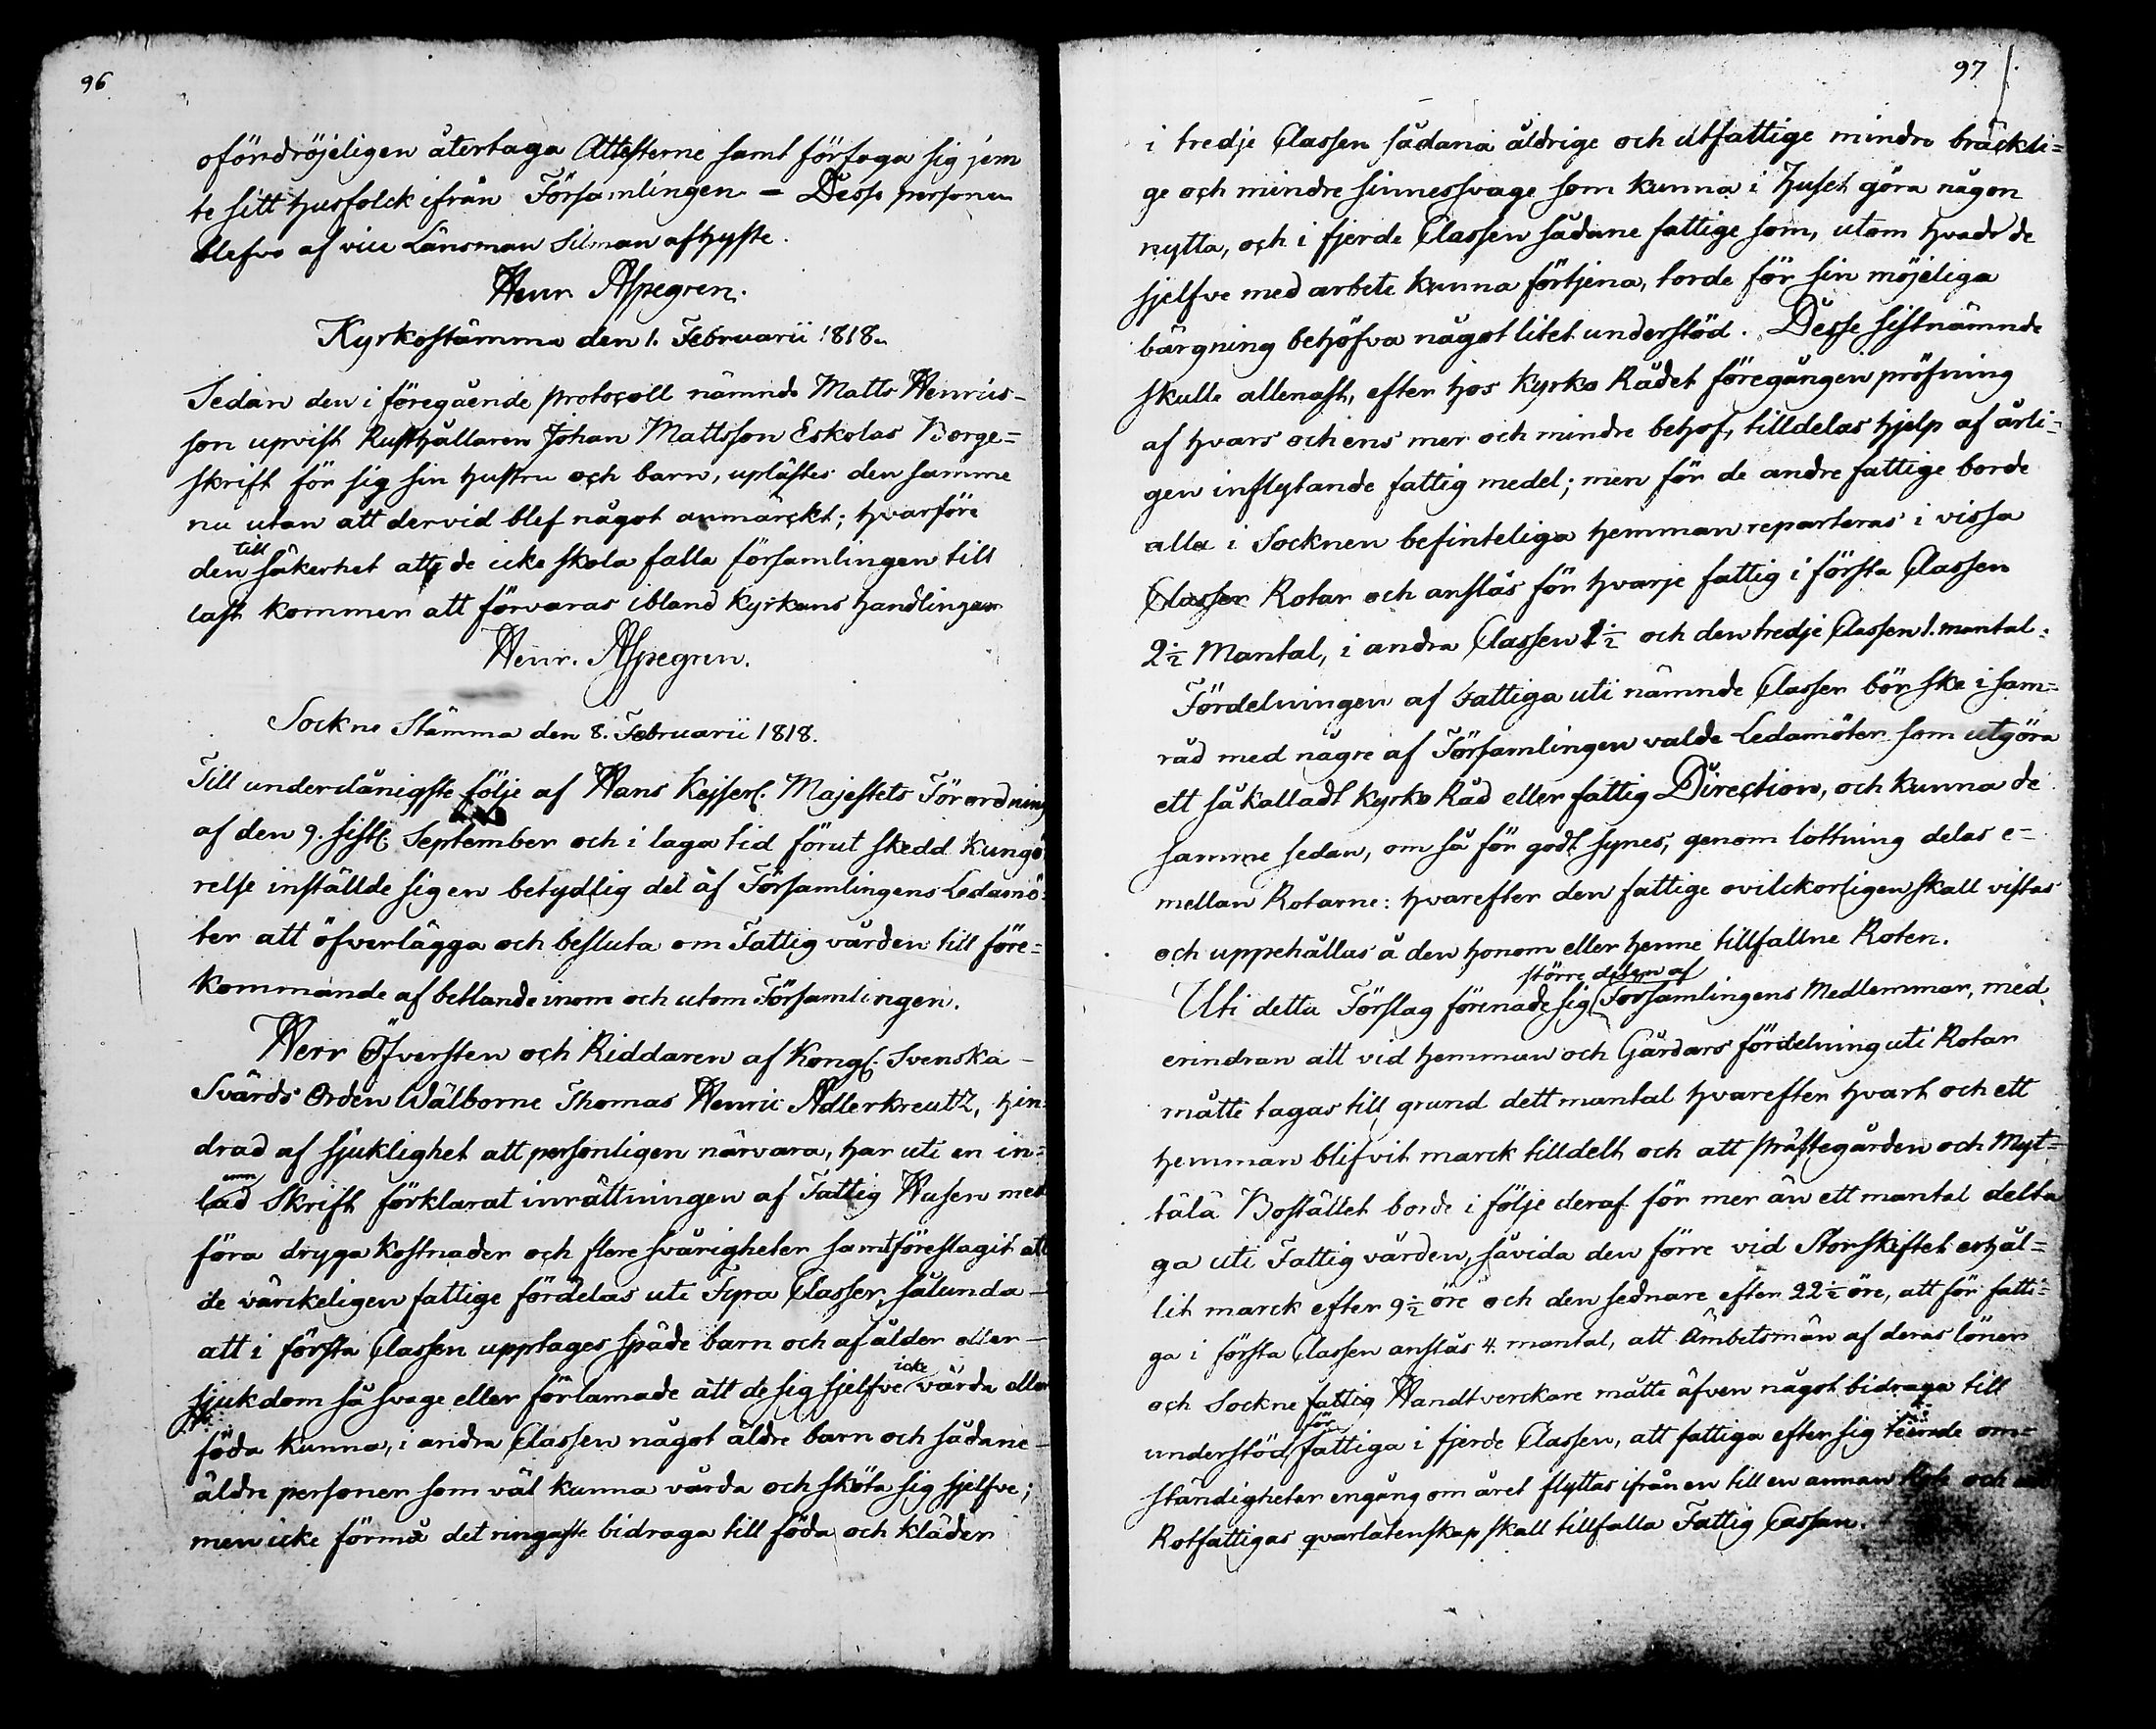 96
ofördröjeligen återtaga Attesterne samt förfoga sig jem
te sitt husfolck ifrån Församlingen = Desse personer
blefvo af vice Länsman Silman afhyste.
Henr Aspegren.
Kyrkostämma den 1. Februarii 1818.
Sedan den i föregående protocoll nämnde Matts Henrics-
son upvist Rusthållaren Johan Mattsson Eskolas Borge=
skrift för sig sin hustru och barn, uplästes den samme
nu utan att dervid blef något anmärckt; hvarföre
den till säkerhet att de icke skola falla församlingen till
last kommer att förvaras ibland Kyrkans handlingar
Henr. Aspegren.
Sockne Stämma den 8. Februarii 1818.
Till underdånigste följe af Hans Kejserl. Majestets Förordning
af den 9. sistl. September och i laga tid förut skedd kungö
relse inställde sig en betydlig del af Församlingens Ledamö=
ter att öfverlägga och besluta om Fattigvården till före=
kommande af bettlande inom och utom Församlingen.
Herr Öfversten och Riddaren af Kongl. Svenska
Svärds Orden Wälborne Thomas Henric Adlerkreutz, hin=
drad af sjuklighet att personligen närvara, har uti en in=
lemnad Skrift förklarat inrättningen af Fattig Husen med
föra dryga kostnader och flere svårigheter samt föreslagit att
de värckeligen fattige fördelas uti Fyra Classer, sålunda
att i första Classen upptages späde barn och af ålder eller
sjukdom så svage eller förlamade att de sig sjelfve icke vårda eller
föda kunna, i andra Classen något äldre barn och sådane
äldre personer som väl kunna vårda och sköta sig sjelfve;
men icke förmå det ringaste bidraga till föda och kläder
97
i tredje Classen sådana åldrige och utfattige mindre bräckli=
ge och mindre sinnessvage som kunna i huset göra någon
nytta, och i fjerde Classen sådane fattige som, utom hvad de
sjelfve med arbete kunna förtjena, torde för sin möjeliga
bärgning behöfva något litet understöd. Desse sistnämnde
skulle allenast, efter hos Kyrko Rådet föregången pröfning
af hvars och ens mer och mindre behof, tilldelas hjelp af årli=
gen inflytande fattig medel; men för de andre fattige borde
alla i Socknen befinteliga hemman reparteras i vissa
Classer Rotar och anslås för hvarje fattig i första Classen
2½ Mantal, i andra Classen 1½ och den tredje Classen 1. mantal.
Fördelningen af Fattiga uti nämnde Classer bör ske i sam=
råd med några af Församlingen valde Ledamöter som utgöra
ett så kalladt Kyrko Råd eller fattig Direction, och kunna de
samme sedan, om så för godt synes, genom lottning delas e-
mellan Rotarne: hvarefter den fattige ovilckorligen skall vistas
och uppehållas å den honom eller henne tillfallne Roten.
Uti detta Förslag förenade sig större delen af Församlingens Medlemmar, med
erindran att vid hemman och Gårdars fördelning uti Rotar
måtte tagas till grund dett mantal hvarefter hvart och ett
hemman blifvit marck tilldelt och att prästegården och Myt=
tälä Bostället borde i följe deraf för mer än ett mantal delta
ga uti Fattigvården, såvida den förre vid Storskiftet erhål=
lit marck efter 9½ öre och den sednare efter 22½ öre, att för fatti=
ga i första Classen anslås 4. mantal, att Ämbetsmän af deras löner
och Sockne fattig Handtverckare måtte äfven något bidraga till
understöd för fattiga i fjerde Classen, att fattiga efter sig om=
ständigheter engång om året flyttas ifrån en till en annan Rote och
Rotfattigas qvarlåtenskap skall tillfalla Fattig Cassan.